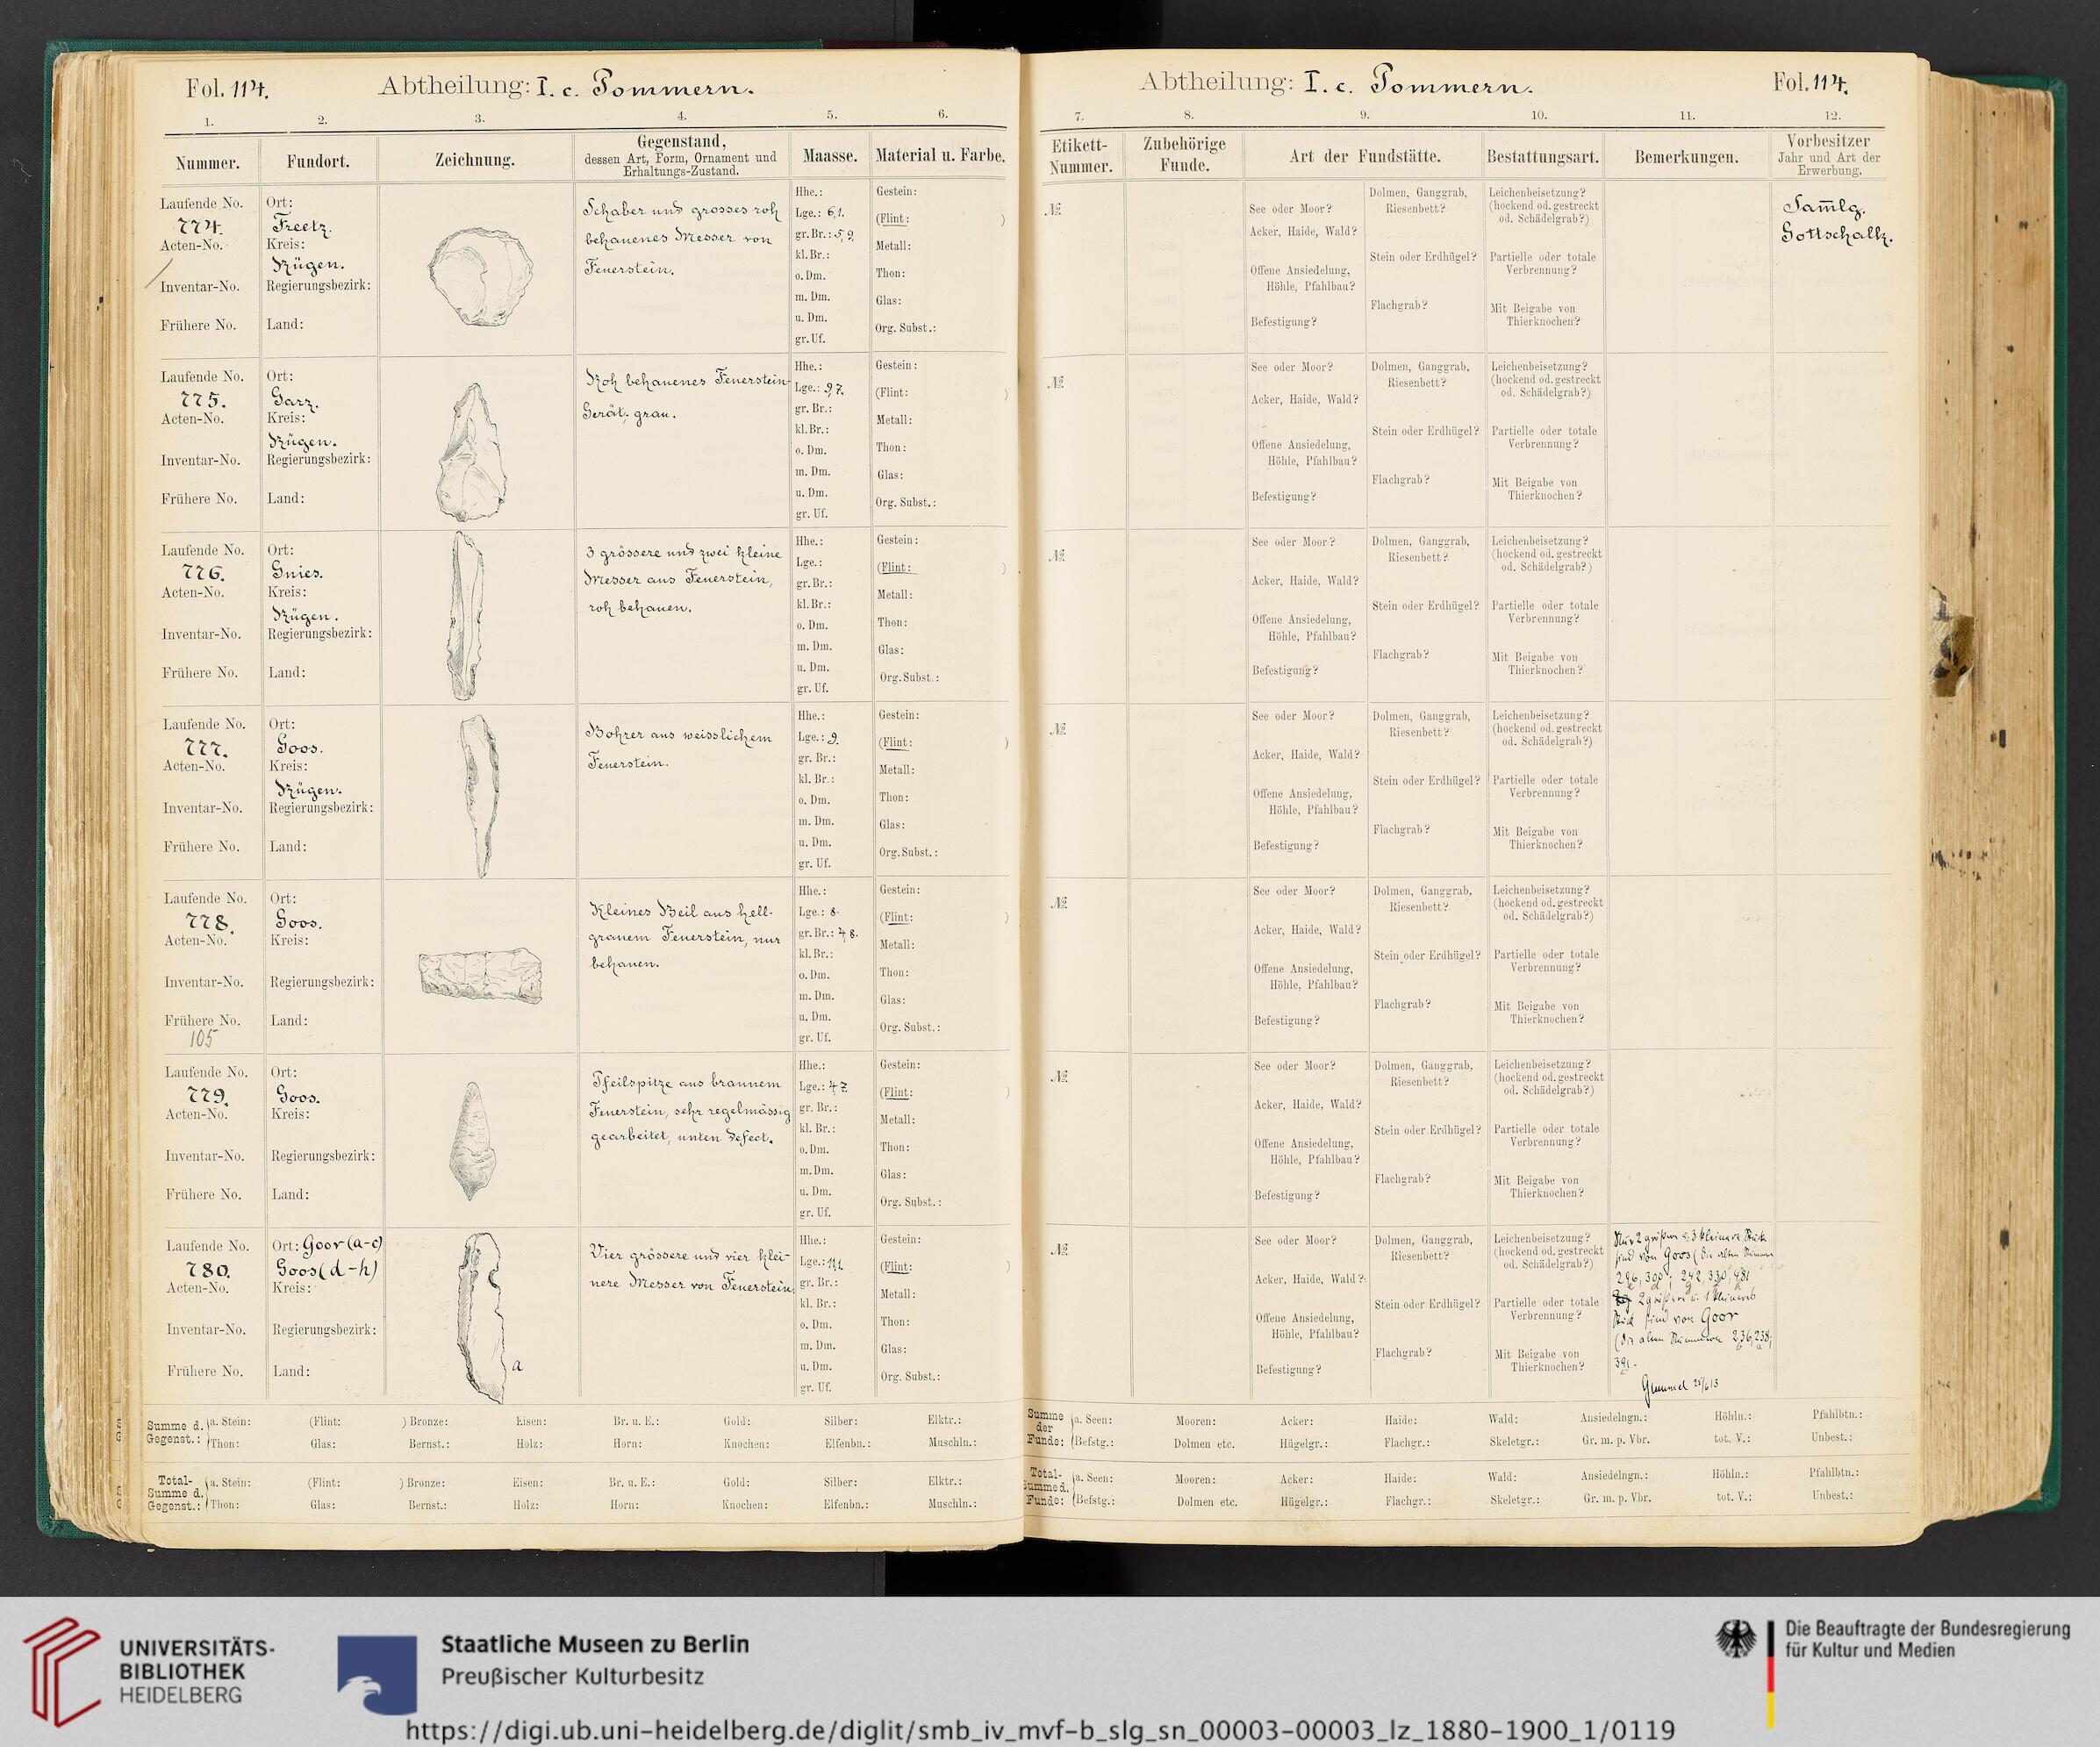 Fol. 114.
Abtheilung: I. c. Pommern.
1. 2. 3. 4. 5. 6.
Nummer.
Fundort.
Zeichnung.
Gegenstand,
dessen Art, Form, Ornament und
Erhaltungs-Zustand.
Maasse.
Material u. Farbe.
Laufende No.
774.
Acten-No.
Inventar-No.
Frühere No.
Ort:
Freetz.
Kreis:
Rügen.
Regierungsbezirk:
Land:
Schaber und grosses roh
behauenes Messer von
Feuerstein.
Hhe.:
Lge.: 6,1.
gr. Br.: 5,9.
kl. Br.:
o. Dm.
m. Dm.
u. Dm.
gr. Uf.
Gestein:
(Flint: )
Metall:
Thon:
Glas:
Org. Subst.:
Laufende No.
775.
Acten-No.
Inventar-No.
Frühere No.
Ort:
Garz.
Kreis:
Rügen.
Regierungsbezirk:
Land:
Roh behauenes Feuerstein-
Gerät, grau.
Hhe.:
Lge.: 9,7.
gr. Br.:
kl. Br.:
o. Dm.
m. Dm.
u. Dm.
gr. Uf.
Gestein:
(Flint: )
Metall:
Thon:
Glas:
Org. Subst.:
Laufende No.
776.
Acten-No.
Inventar-No.
Frühere No.
Ort:
Gnies.
Kreis:
Rügen.
Regierungsbezirk:
Land:
3 grössere und zwei kleine
Messer aus Feuerstein,
roh behauen.
Hhe.:
Lge.:
gr. Br.:
kl. Br.:
o. Dm.
m. Dm.
u. Dm.
gr. Uf.
Gestein:
(Flint: )
Metall:
Thon:
Glas:
Org. Subst.:
Laufende No.
777.
Acten-No.
Inventar-No.
Frühere No.
Ort:
Goos.
Kreis:
Rügen.
Regierungsbezirk:
Land:
Bohrer aus weisslichem
Feuerstein.
Hhe.:
Lge.: 9.
gr. Br.:
kl. Br.:
o. Dm.
m. Dm.
u. Dm.
gr. Uf.
Gestein:
(Flint: )
Metall:
Thon:
Glas:
Org. Subst.:
Laufende No.
778.
Acten-No.
Inventar-No.
Frühere No.
105
Ort:
Goos.
Kreis:
Regierungsbezirk:
Land:
Kleines Beil aus hell-
grauem Feuerstein, nur
behauen.
Hhe.:
Lge.: 8.
gr. Br.: 4,8.
kl. Br.:
o. Dm.
m. Dm.
u. Dm.
gr. Uf.
Gestein:
(Flint: )
Metall:
Thon:
Glas:
Org. Subst.:
Laufende No.
779.
Acten-No.
Inventar-No.
Frühere No.
Ort:
Goos.
Kreis:
Regierungsbezirk:
Land:
Pfeilspitze aus braunem
Feuerstein, sehr regelmässig
gearbeitet, unten defect.
Hhe.:
Lge.: 4,7.
gr. Br.:
kl. Br.:
o. Dm.
m. Dm.
u. Dm.
gr. Uf.
Gestein:
(Flint: )
Metall:
Thon:
Glas:
Org. Subst.:
Laufende No.
780.
Acten-No.
Inventar-No.
Frühere No.
Ort: Goor (a-c)
Goos (d-h)
Kreis:
Regierungsbezirk:
Land:
a
Vier grössere und vier klei-
nere Messer von Feuerstein.
Hhe.:
Lge.: 11,1.
gr. Br.:
kl. Br.:
o. Dm.
m. Dm.
u. Dm.
gr. Uf.
Gestein:
(Flint: )
Metall:
Thon:
Glas:
Org. Subst.:
Summe d. Gegenst.: a. Stein: (Flint: ) Bronze: Eisen: Br. u. E.: Gold: Silber: Elktr.:
Thon: Glas: Bernst.: Holz: Horn: Knochen: Elfenbn.: Muschln.:
Total-Summe d. Gegenst.: a. Stein: (Flint: ) Bronze: Eisen: Br. u. E.: Gold: Silber: Elktr.:
Thon: Glas: Bernst.: Holz: Horn: Knochen: Elfenbn.: Muschln.:
Abtheilung: I. c. Pommern.
Fol. 114.
7. 8. 9. 10. 11. 12.
Etikett-
Nummer.
Zubehörige
Funde.
Art der Fundstätte.
Bestattungsart.
Bemerkungen.
Vorbesitzer
Jahr und Art der
Erwerbung.
№
See oder Moor?
Acker, Haide, Wald?
Offene Ansiedelung,
Höhle, Pfahlbau?
Befestigung?
Dolmen, Ganggrab,
Riesenbett?
Stein oder Erdhügel?
Flachgrab?
Leichenbeisetzung?
(hockend od. gestreckt
od. Schädelgrab?)
Partielle oder totale
Verbrennung?
Mit Beigabe von
Thierknochen?
Samlg.
Gottschalk.
№
See oder Moor?
Acker, Haide, Wald?
Offene Ansiedelung,
Höhle, Pfahlbau?
Befestigung?
Dolmen, Ganggrab,
Riesenbett?
Stein oder Erdhügel?
Flachgrab?
Leichenbeisetzung?
(hockend od. gestreckt
od. Schädelgrab?)
Partielle oder totale
Verbrennung?
Mit Beigabe von
Thierknochen?
№
See oder Moor?
Acker, Haide, Wald?
Offene Ansiedelung,
Höhle, Pfahlbau?
Befestigung?
Dolmen, Ganggrab,
Riesenbett?
Stein oder Erdhügel?
Flachgrab?
Leichenbeisetzung?
(hockend od. gestreckt
od. Schädelgrab?)
Partielle oder totale
Verbrennung?
Mit Beigabe von
Thierknochen?
№
See oder Moor?
Acker, Haide, Wald?
Offene Ansiedelung,
Höhle, Pfahlbau?
Befestigung?
Dolmen, Ganggrab,
Riesenbett?
Stein oder Erdhügel?
Flachgrab?
Leichenbeisetzung?
(hockend od. gestreckt
od. Schädelgrab?)
Partielle oder totale
Verbrennung?
Mit Beigabe von
Thierknochen?
№
See oder Moor?
Acker, Haide, Wald?
Offene Ansiedelung,
Höhle, Pfahlbau?
Befestigung?
Dolmen, Ganggrab,
Riesenbett?
Stein oder Erdhügel?
Flachgrab?
Leichenbeisetzung?
(hockend od. gestreckt
od. Schädelgrab?)
Partielle oder totale
Verbrennung?
Mit Beigabe von
Thierknochen?
№
See oder Moor?
Acker, Haide, Wald?
Offene Ansiedelung,
Höhle, Pfahlbau?
Befestigung?
Dolmen, Ganggrab,
Riesenbett?
Stein oder Erdhügel?
Flachgrab?
Leichenbeisetzung?
(hockend od. gestreckt
od. Schädelgrab?)
Partielle oder totale
Verbrennung?
Mit Beigabe von
Thierknochen?
№
See oder Moor?
Acker, Haide, Wald?
Offene Ansiedelung,
Höhle, Pfahlbau?
Befestigung?
Dolmen, Ganggrab,
Riesenbett?
Stein oder Erdhügel?
Flachgrab?
Leichenbeisetzung?
(hockend od. gestreckt
od. Schädelgrab?)
Partielle oder totale
Verbrennung?
Mit Beigabe von
Thierknochen?
Nur 2 größere u. 3 kleinere Stück
sind von Goos (die alten Nummern
296, 300; 242, 330, 481
2 größere u. 1 kleineres
Stück sind von Goor
(die alten Nummern 236, 238;
391.
25/6 13
Summe der Funde: a. Seen: Mooren: Acker: Haide: Wald: Ansiedelngn.: Höhln.: Pfahlbtn.:
Befstg.: Dolmen etc. Hügelgr.: Flachgr.: Skeletgr.: Gr. m. p. Vbr. tot. V.: Unbest.:
Total-Summe d. Funde: a. Seen: Mooren: Acker: Haide: Wald: Ansiedelngn.: Höhln.: Pfahlbtn.:
Befstg.: Dolmen etc. Hügelgr.: Flachgr.: Skeletgr.: Gr. m. p. Vbr. tot. V.: Unbest.:
UNIVERSITÄTS-
BIBLIOTHEK
HEIDELBERG
Staatliche Museen zu Berlin
Preußischer Kulturbesitz
Die Beauftragte der Bundesregierung
für Kultur und Medien
https://digi.ub.uni-heidelberg.de/diglit/smb_iv_mvf-b_slg_sn_00003-00003_lz_1880-1900_1/0119